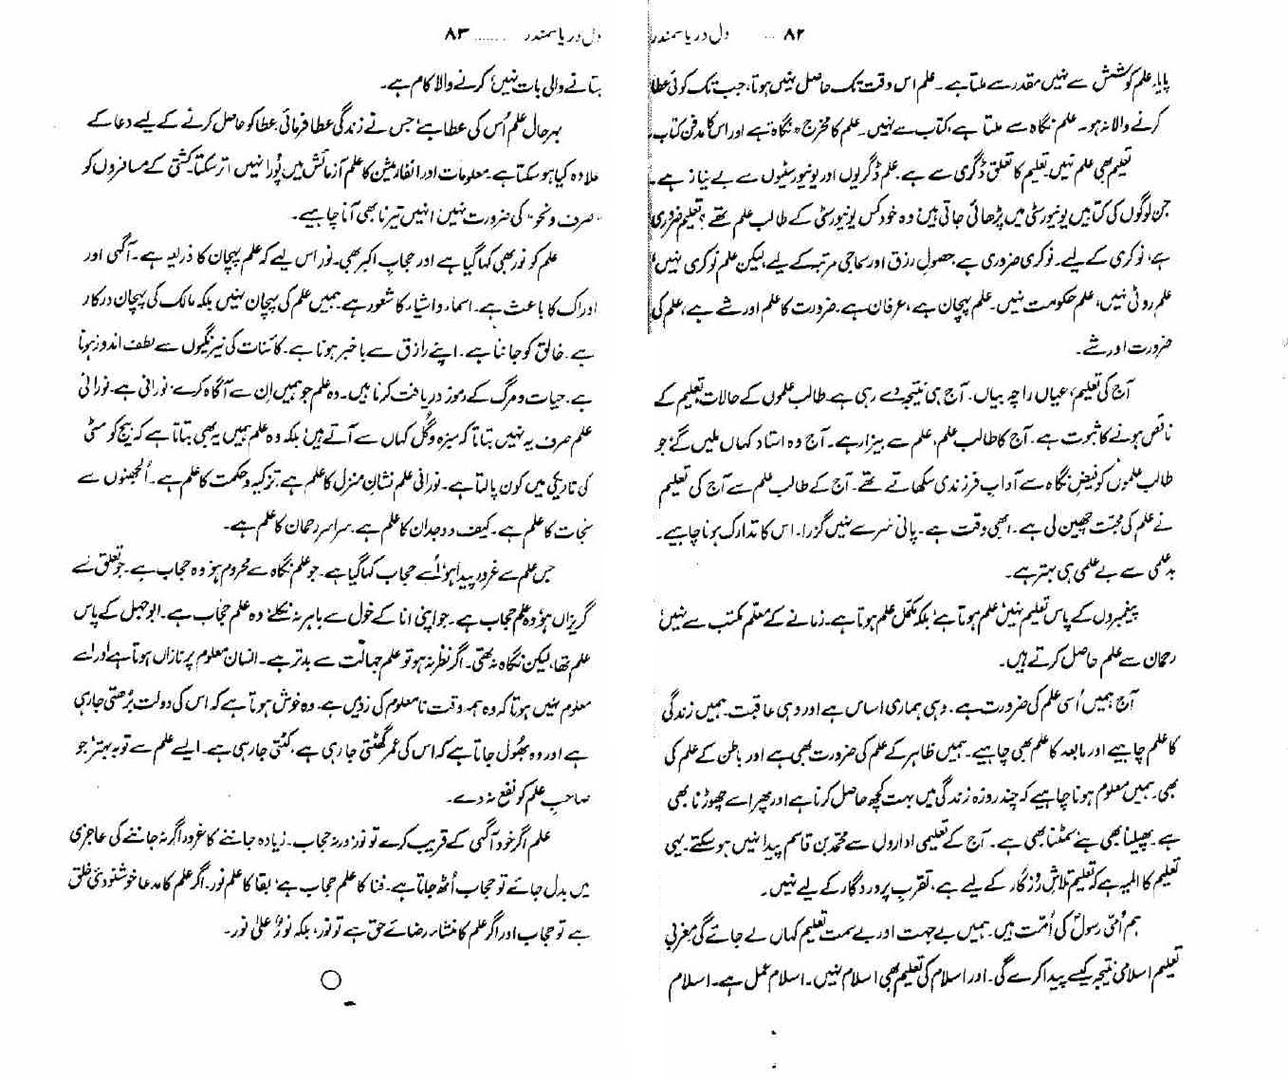 ۸۲ ... دل دریا سمندر
پایا۔ علم کوشش سے نہیں مقدر سے ملتا ہے۔ علم اس وقت تک حاصل نہیں ہوتا، جب تک کوئی عطا
کرنے والا نہ ہو۔ علم نگاہ سے ملتا ہے، کتاب سے نہیں۔ علم کا مخرج "نگاہ" ہے اور اس کا مدفن کتاب۔
تعلیم بھی علم نہیں۔ تعلیم کا تعلق ڈگری سے ہے۔ علم ڈگریوں اور یونیورسٹیوں سے بے نیاز ہے۔
جن لوگوں کی کتابیں یونیورسٹی میں پڑھائی جاتی ہیں، وہ خود کس یونیورسٹی کے طالب علم تھے؟ تعلیم ضروری
ہے، نوکری کے لیے۔ نوکری ضروری ہے، حصولِ رزق اور سماجی مرتبہ کے لیے، لیکن علم نوکری نہیں،
علم روٹی نہیں، علم حکومت نہیں۔ علم پہچان ہے، عرفان ہے۔ ضرورت کا علم اور شے ہے، علم کی
ضرورت اور شے۔
آج کی تعلیم، عیاں را چہ بیاں۔ آج ہی نتیجہ دے رہی ہے۔ طالب علموں کے حالات، تعلیم کے
ناقص ہونے کا ثبوت ہے۔ آج کا طالب علم، علم سے بیزار ہے۔ آج وہ استاد کہاں ملیں گے، جو
طالب علموں کو فیضِ نگاہ سے آدابِ فرزندی سکھاتے تھے۔ آج کے طالب علم سے آج کی تعلیم
نے علم کی محبت چھین لی ہے۔ ابھی وقت ہے۔ پانی سر سے نہیں گزرا۔ اس کا تدارک ہونا چاہیے۔
بدعلمی سے بے علمی ہی بہتر ہے۔
پیغمبروں کے پاس تعلیم نہیں، علم ہوتا ہے، بلکہ مکمل علم ہوتا ہے۔ زمانے کے معلّم مکتب سے نہیں
رحمان سے علم حاصل کرتے ہیں۔
آج ہمیں اُسی علم کی ضرورت ہے۔ وہی ہماری اساس ہے اور وہی عاقبت۔ ہمیں زندگی
کا علم چاہیے اور مابعد کا علم بھی چاہیے۔ ہمیں ظاہر کے علم کی ضرورت بھی ہے اور باطن کے علم کی
بھی۔ ہمیں معلوم ہونا چاہیے کہ چند روزہ زندگی میں بہت کچھ حاصل کرنا ہے اور پھر اسے چھوڑنا بھی
ہے۔ پھیلنا بھی ہے، سمٹنا بھی ہے۔ آج کے تعلیمی اداروں سے محمد بن قاسم پیدا نہیں ہو سکتے۔ یہی
تعلیم کا المیہ ہے کہ تعلیم تلاشِ روزگار کے لیے ہے، تقربِ پروردگار کے لیے نہیں۔
ہم اُمّی رسولؐ کی اُمّت ہیں۔ ہمیں بے جہت اور بے سمت تعلیم کہاں لے جائے گی۔ مغربی
تعلیم اسلامی نتیجہ کیسے پیدا کرے گی۔ اور اسلام کی تعلیم بھی اسلام نہیں۔ اسلام عمل ہے۔ اسلام
دل دریا سمندر ....... ۸۳
بتانے والی بات نہیں، کرنے والا کام ہے۔
بہرحال علم اُس کی عطا ہے، جس نے زندگی عطا فرمائی۔ عطا کو حاصل کرنے کے لیے دعا کے
علاوہ کیا ہو سکتا ہے۔ معلومات اور انفارمیشن کا علم آزمائش میں پُورا نہیں اتر سکتا۔ کشتی کے مسافروں کو
"صرف و نحو" کی ضرورت نہیں، انہیں تیرنا بھی آنا چاہیے۔
علم کو نُور بھی کہا گیا ہے اور حجابِ اکبر بھی۔ نور اس لیے کہ علم پہچان کا ذریعہ ہے۔ آگہی اور
ادراک کا باعث ہے۔ اسماء و اشیاء کا شعور ہے۔ ہمیں علم کی پہچان نہیں بلکہ مالک کی پہچان درکار
ہے۔ خالق کو جاننا ہے۔ اپنے رازق سے باخبر ہونا ہے۔ کائنات کی نیرنگیوں سے لطف اندوز ہونا
ہے۔ حیات و مرگ کے رموز دریافت کرنا ہیں۔ وہ علم جو ہمیں اِن سے آگاہ کرے، نورانی ہے۔ نورانی
علم صرف یہ نہیں بتاتا کہ سبزہ و گُل کہاں سے آتے ہیں، بلکہ وہ علم ہمیں یہ بھی بتاتا ہے کہ بیج کو مٹی
کی تاریکی میں کون پالتا ہے۔ نورانی علم نشانِ منزل کا علم ہے، تزکیہ و حکمت کا علم ہے۔ اُلجھنوں سے
نجات کا علم ہے۔ کیف و وجدان کا علم ہے۔ سراسر رحمان کا علم ہے۔
جس علم سے غرور پیدا ہو، اُسے حجاب کہا گیا ہے۔ جو علم نگاہ سے محروم ہو، وہ حجاب ہے۔ جو تعلق سے
گریزاں ہو، وہ علم حجاب ہے۔ جو اپنی انا کے خول سے باہر نہ نکلے، وہ علم حجاب ہے۔ ابوجہل کے پاس
علم تھا، لیکن نگاہ نہ تھی۔ اگر نظر نہ ہو تو علم جہالت سے بدتر ہے۔ انسان معلوم پر نازاں ہوتا ہے اور اسے
معلوم نہیں ہوتا کہ وہ ہمہ وقت نامعلوم کی زد میں ہے۔ وہ خوش ہوتا ہے کہ اس کی دولت بڑھتی جا رہی
ہے اور وہ بھُول جاتا ہے کہ اس کی عمر گھٹتی جا رہی ہے، کٹتی جا رہی ہے۔ ایسے علم سے توبہ بہتر، جو
صاحبِ علم کو نفع نہ دے۔
علم اگر خود آگہی کے قریب کرے تو نور، ورنہ حجاب۔ زیادہ جاننے کا غرور اگر نہ جاننے کی عاجزی
میں بدل جائے تو حجاب اُٹھ جاتا ہے۔ فنا کا علم حجاب ہے، بقا کا علم نور۔ اگر علم کا مدعا خوشنودیِ خلق
ہے تو حجاب اور اگر علم کا منشاء رضائے حق ہے تو نور، بلکہ نورٌ علیٰ نور۔